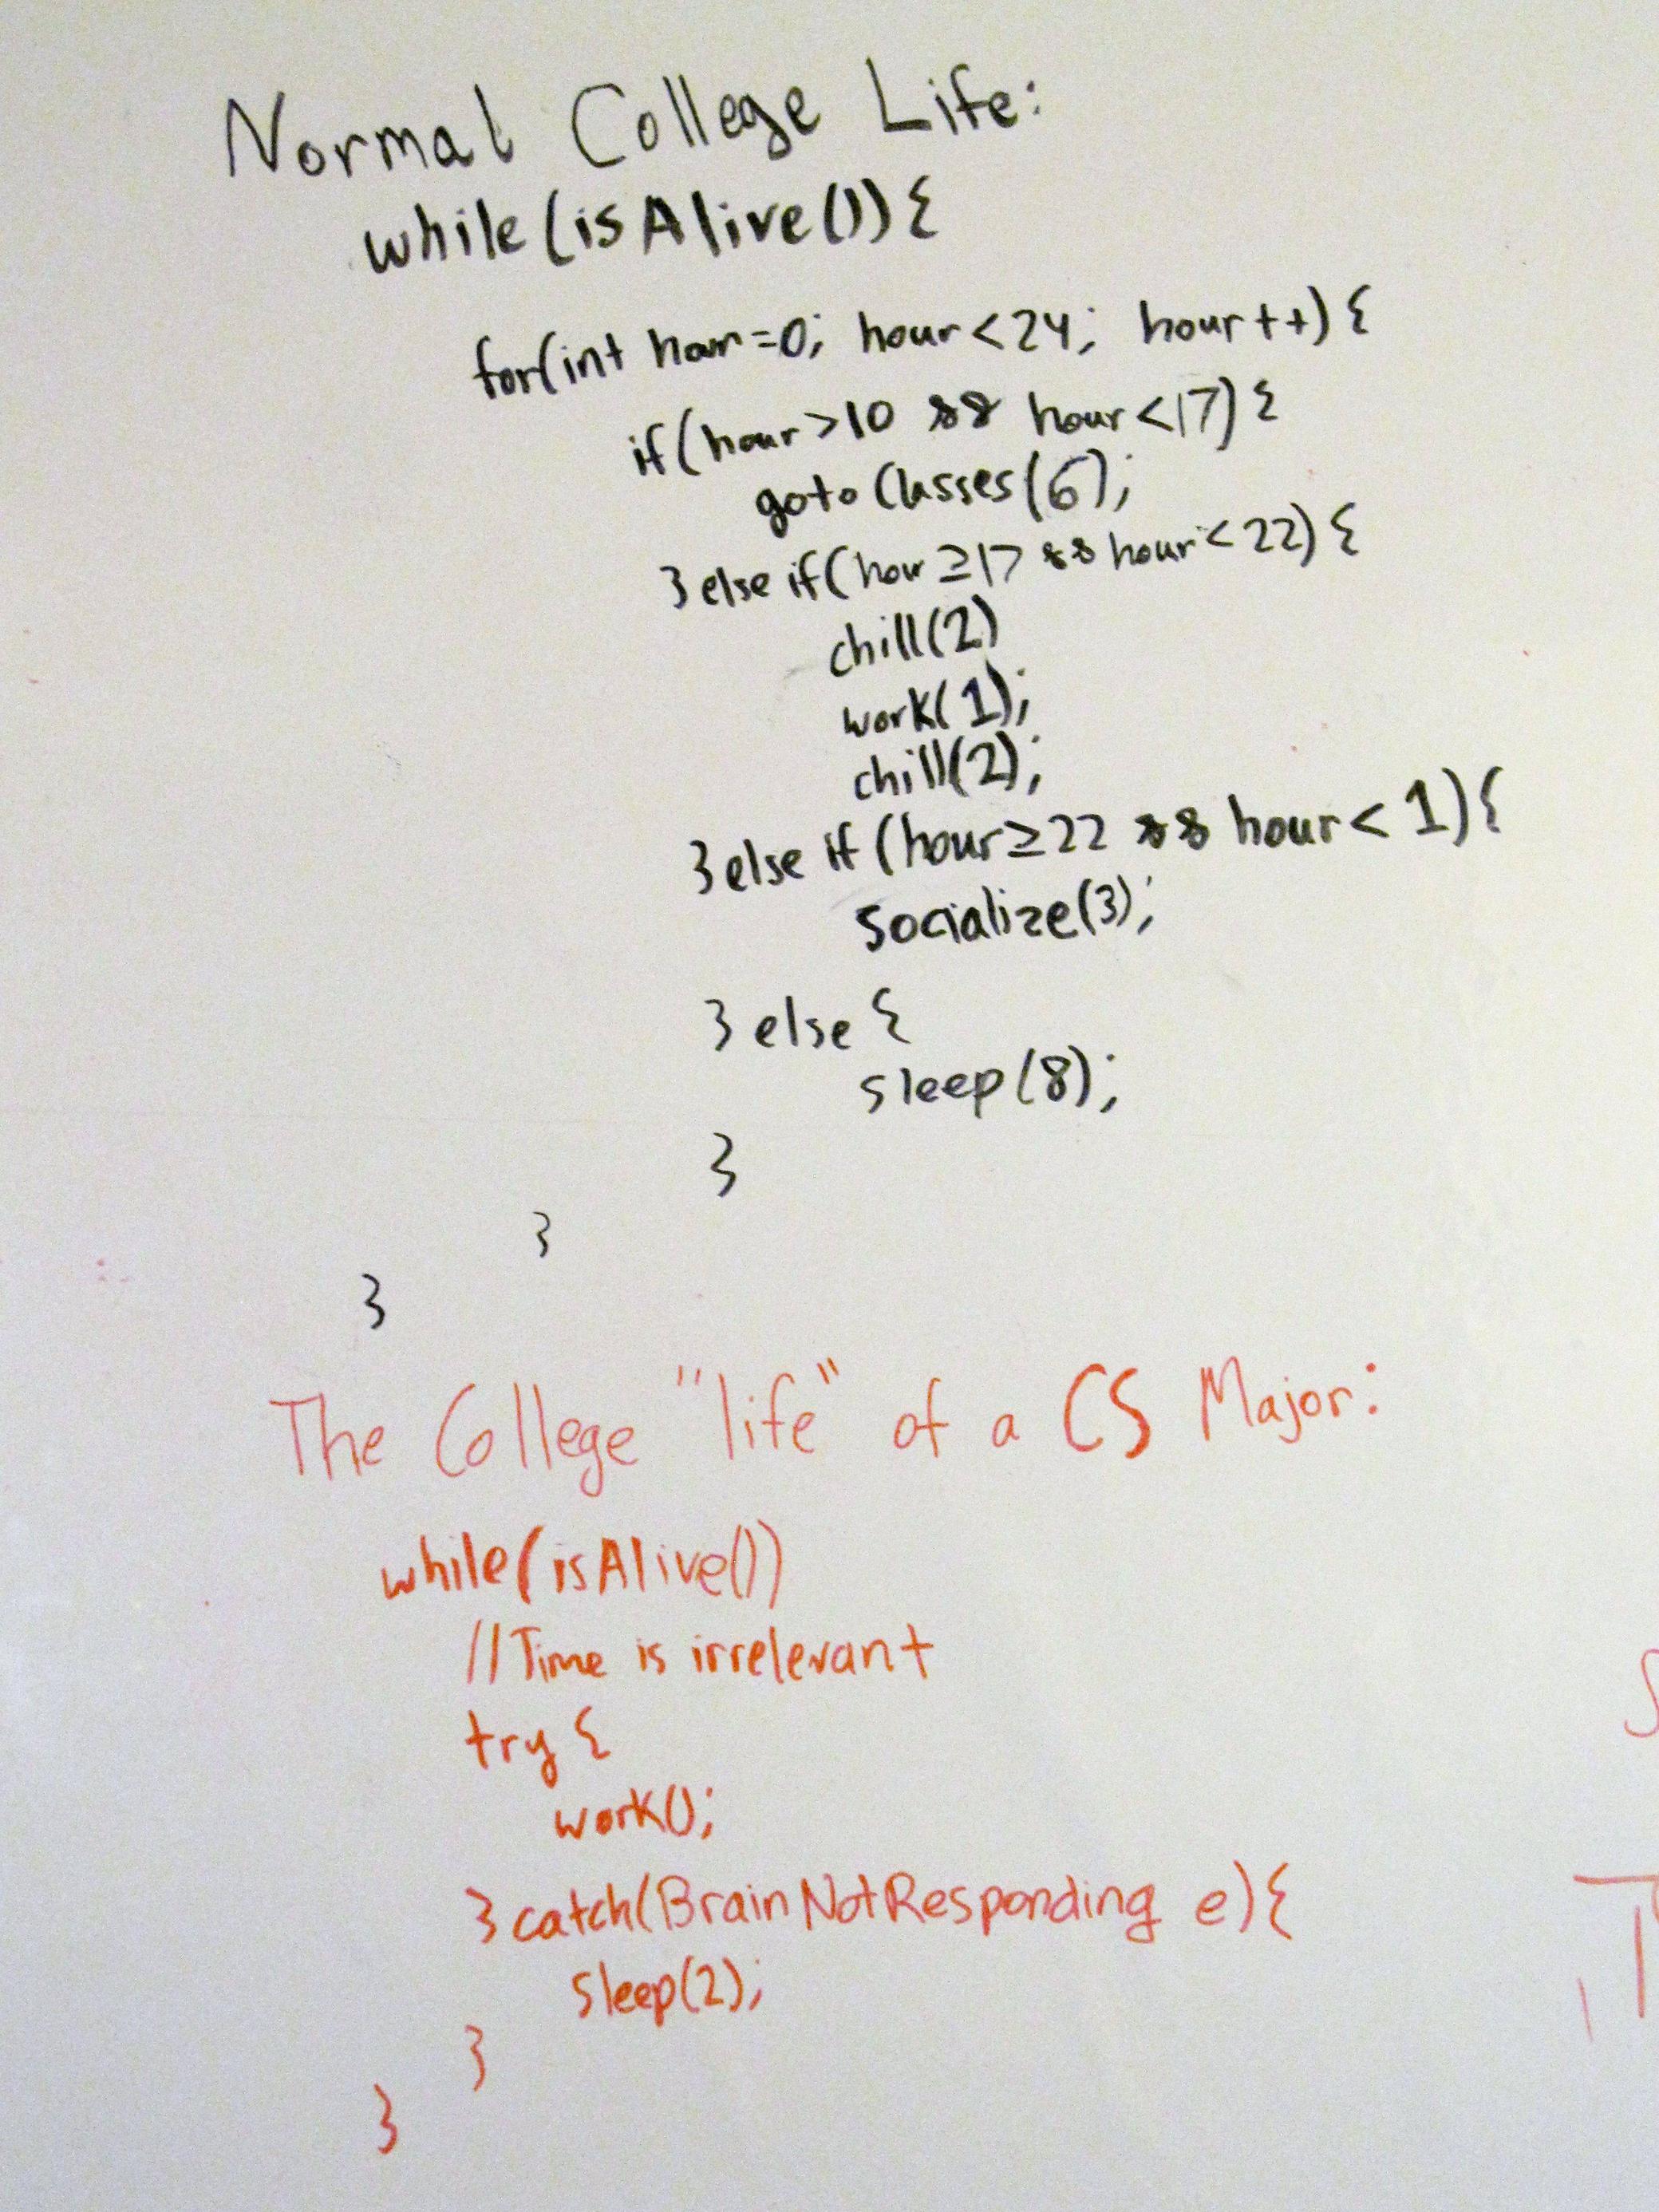 Normal College Life:
while(isAlive()){
for(int hour=0; hour<24; hour++){
if(hour>10 && hour<17){
gotoClasses(6);
}else if(hour≥17 && hour<22){
chill(2)
work(1);
chill(2);
}else if(hour≥22 && hour<1){
socialize(3);
}else{
sleep(8);
}
}
}
The College "life" of a CS Major:
while(isAlive())
//Time is irrelevant
try{
work();
}catch(BrainNotResponding e){
sleep(2);
}
}